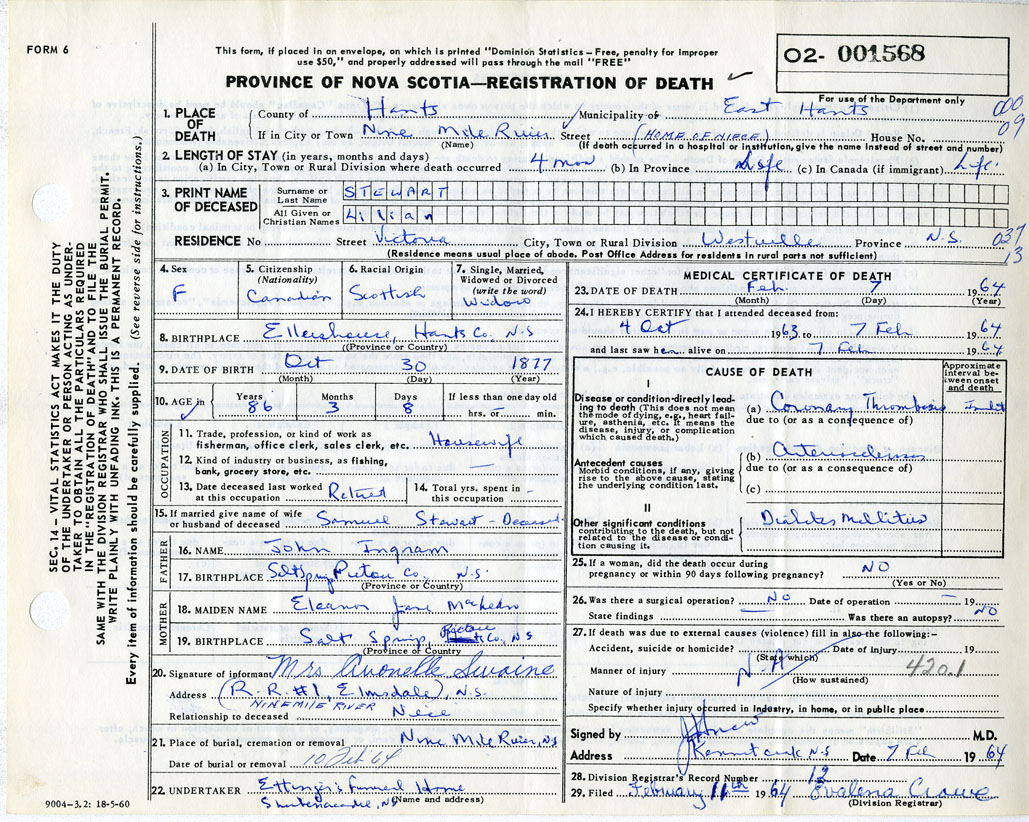 FORM 6
This form, if placed in an envelope, on which is printed "Dominion Statistics – Free, penalty for improper
use $50," and properly addressed will pass through the mail "FREE"
O2- 001568
PROVINCE OF NOVA SCOTIA—REGISTRATION OF DEATH ✓
For use of the Department only
000
09
1. PLACE OF DEATH
County of Hants Municipality of East Hants
If in City or Town Nine Mile River Street (HOME OF NIECE) House No.
(Name) (If death occurred in a hospital or institution, give the name instead of street and number)
2. LENGTH OF STAY (in years, months and days)
(a) In City, Town or Rural Division where death occurred 4 mon (b) In Province Life (c) In Canada (if immigrant) Life
3. PRINT NAME OF DECEASED
Surname or Last Name STEWART
All Given or Christian Names Lilian
RESIDENCE No Street Victoria City, Town or Rural Division Westville Province N.S. 037
13
(Residence means usual place of abode. Post Office Address for residents in rural parts not sufficient)
4. Sex
F
5. Citizenship
(Nationality)
Canadian
6. Racial Origin
Scottish
7. Single, Married,
Widowed or Divorced
(write the word)
Widow
8. BIRTHPLACE Ellershouse, Hants Co. N.S
(Province or Country)
9. DATE OF BIRTH Oct 30 1877
(Month) (Day) (Year)
10. AGE in Years Months Days If less than one day old
86 3 8 hrs. or min.
OCCUPATION
11. Trade, profession, or kind of work as
fisherman, office clerk, sales clerk, etc. Housewife
12. Kind of industry or business, as fishing,
bank, grocery store, etc. —
13. Date deceased last worked
at this occupation Retired
14. Total yrs. spent in
this occupation -
15. If married give name of wife
or husband of deceased Samuel Stewart - Deceased
FATHER
16. NAME John Ingram
17. BIRTHPLACE Salt Spring Pictou Co. N.S.
(Province or Country)
MOTHER
18. MAIDEN NAME Eleanor Jane
19. BIRTHPLACE Salt Spring, Pictou Co, NS
(Province or Country)
20. Signature of informant Mrs Avonelle Swaine
Address (R.R.#1, Elmsdale) N.S.
NINE MILE RIVER
Relationship to deceased Niece
21. Place of burial, cremation or removal Nine Mile River, NS
Date of burial or removal 10 Feb 64
22. UNDERTAKER Ettinger's Funeral Home
Shubenacadie, NS (Name and address)
9004-3.2: 18-5-60
MEDICAL CERTIFICATE OF DEATH
23. DATE OF DEATH Feb 7 1964
(Month) (Day) (Year)
24. I HEREBY CERTIFY that I attended deceased from:
4 Oct 1963 to 7 Feb 1964
and last saw her alive on 7 Feb 1964
CAUSE OF DEATH
Approximate
interval be-
tween onset
and death
I
Disease or condition directly lead-
ing to death (This does not mean
the mode of dying, e.g., heart fail-
ure, asthenia, etc. It means the
disease, injury, or complication
which caused death.)
(a) Coronary Thrombosis
due to (or as a consequence of)
Antecedent causes
Morbid conditions, if any, giving
rise to the above cause, stating
the underlying condition last.
(b) Arteriosclerosis
due to (or as a consequence of)
(c)
II
Other significant conditions
contributing to the death, but not
related to the disease or condi-
tion causing it.
Diabetes Mellitus
25. If a woman, did the death occur during
pregnancy or within 90 days following pregnancy? NO
(Yes or No)
26. Was there a surgical operation? No Date of operation — 19
State findings Was there an autopsy? NO
27. If death was due to external causes (violence) fill in also the following:–
Accident, suicide or homicide? Date of injury 19
(State which)
Manner of injury N.A 420.1
(How sustained)
Nature of injury
Specify whether injury occurred in industry, in home, or in public place
Signed by M.D.
Address Kennetcook N.S Date 7 Feb 1964
28. Division Registrar's Record Number 12
29. Filed February 11th 1964 Evalena Crowe
(Division Registrar)
SEC. 14 – VITAL STATISTICS ACT MAKES IT THE DUTY
OF THE UNDERTAKER OR PERSON ACTING AS UNDER-
TAKER TO OBTAIN ALL THE PARTICULARS REQUIRED
IN THE "REGISTRATION OF DEATH" AND TO FILE THE
SAME WITH THE DIVISION REGISTRAR WHO SHALL ISSUE THE BURIAL PERMIT.
WRITE PLAINLY WITH UNFADING INK. THIS IS A PERMANENT RECORD.
Every item of information should be carefully supplied. (See reverse side for instructions.)